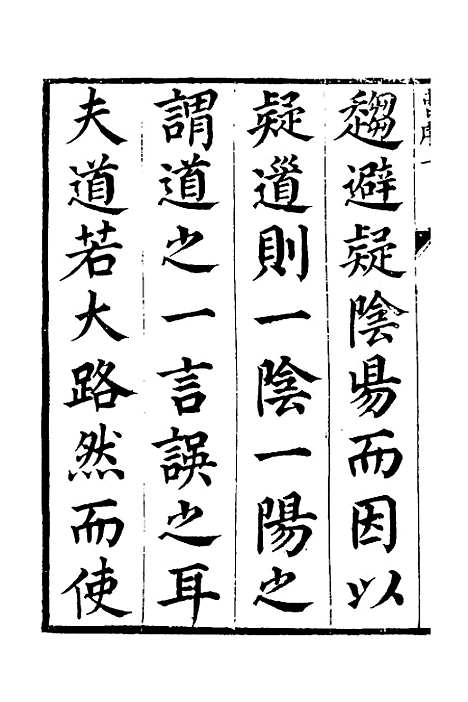 趨避疑陰陽而因以
疑道則一陰一陽之
謂道之一言誤之耳
夫道若大路然而使